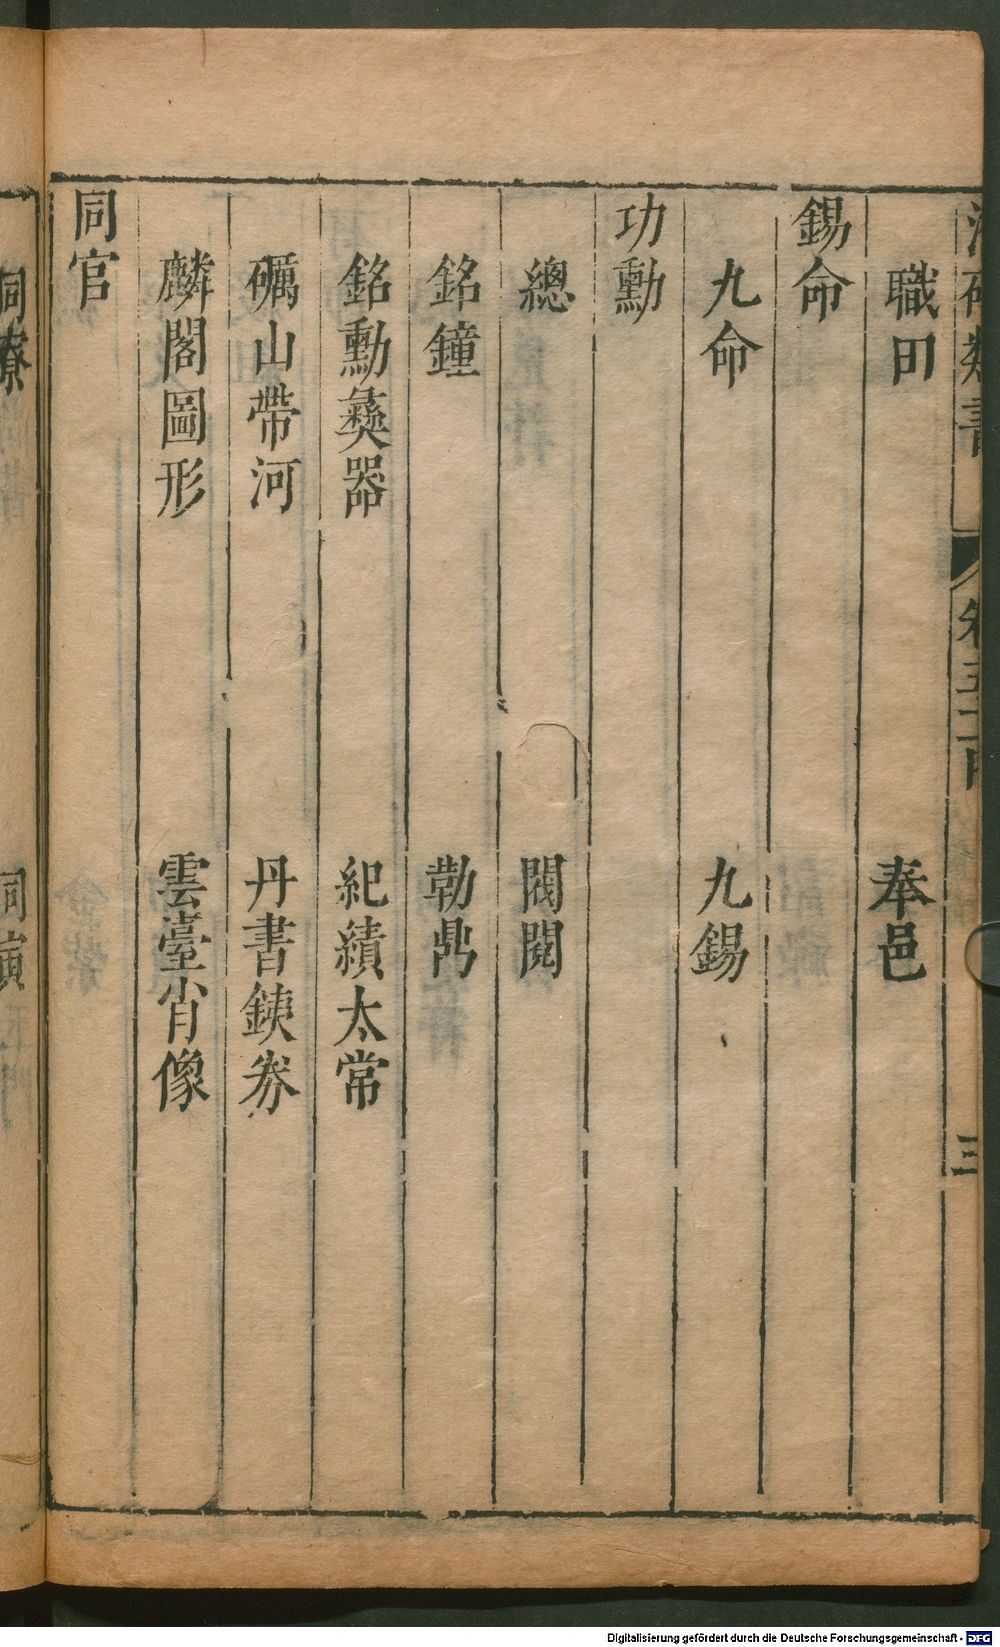 職田 奉邑
錫命
九命 九錫
功勳
總 閥閱
銘鐘 勒鼎
銘勳彝器 紀績太常
礪山帶河 丹書鐵券
麟閣圖形 雲臺肖像
同官
同寮 同寅
Digitalisierung gefördert durch die Deutsche Forschungsgemeinschaft - DFG